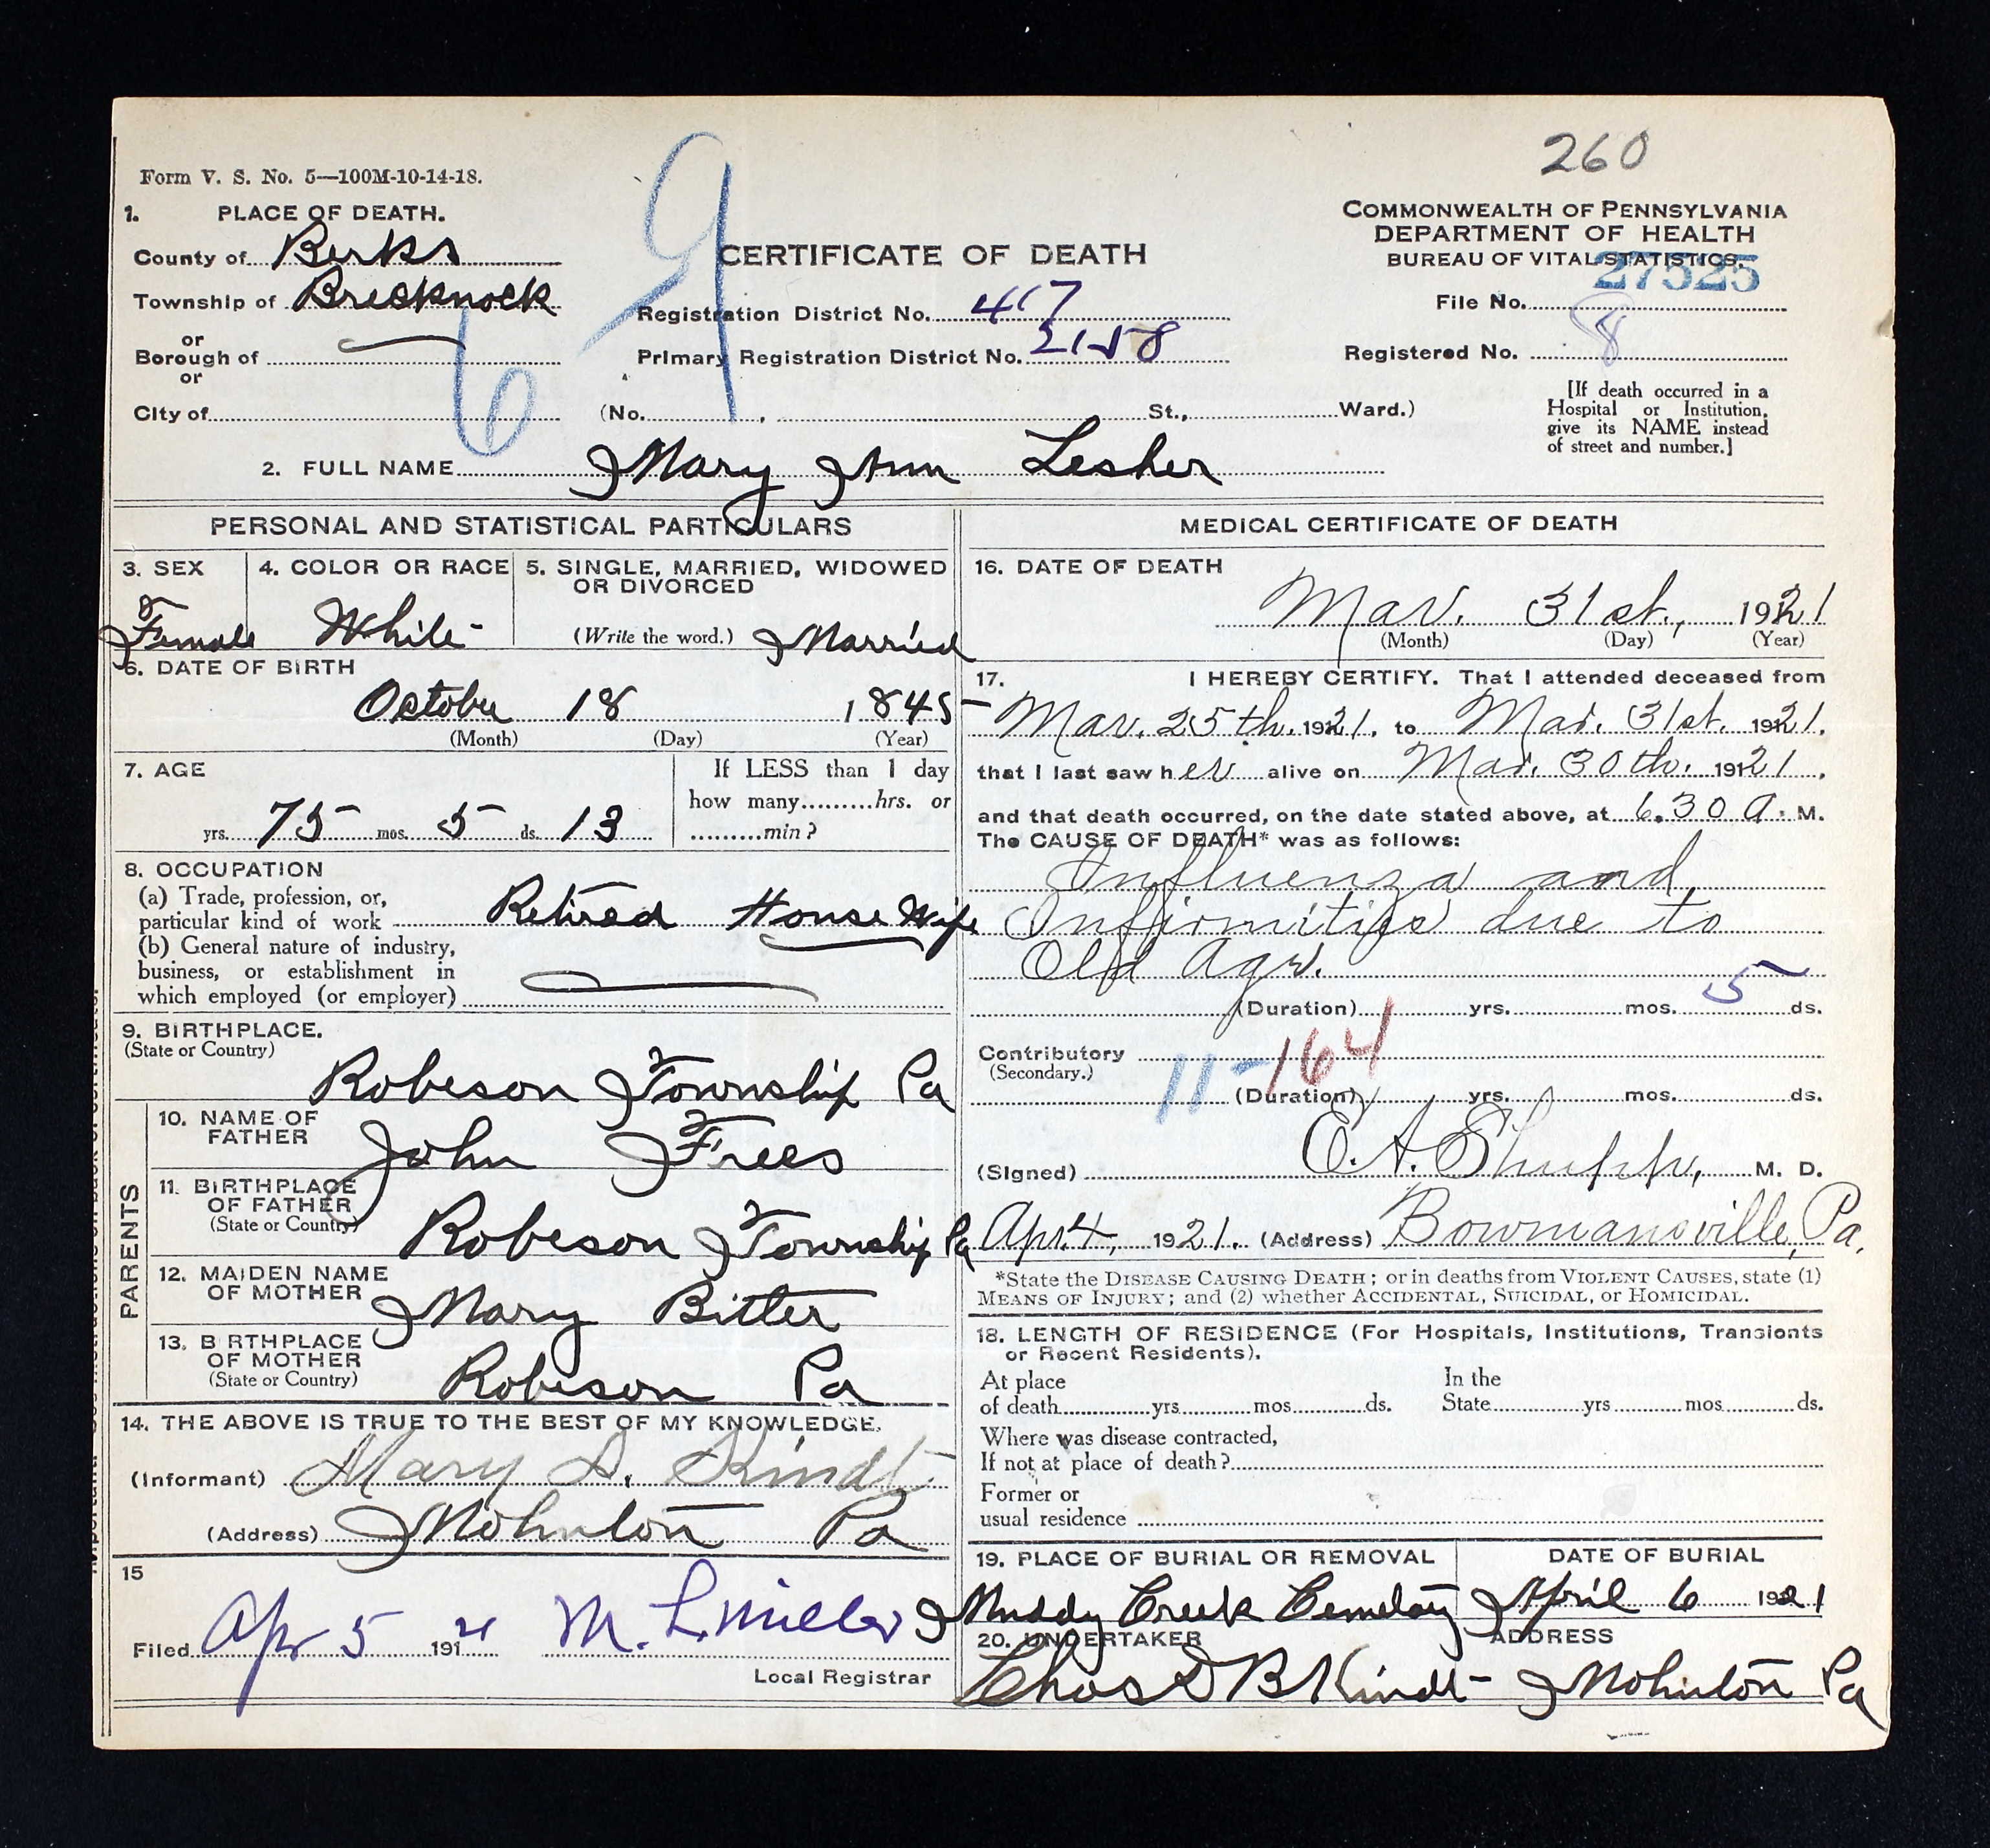 260
Form V. S. No. 5—100M-10-14-18.
1. PLACE OF DEATH.
County of Berks
Township of Brecknock
or
Borough of
or
City of
CERTIFICATE OF DEATH
Registration District No. 417
Primary Registration District No. 2158
(No. , St., Ward.)
COMMONWEALTH OF PENNSYLVANIA
DEPARTMENT OF HEALTH
BUREAU OF VITAL STATISTICS.
27525
File No.
Registered No. 8
[If death occurred in a
Hospital or Institution,
give its NAME instead
of street and number.]
2. FULL NAME Mary Ann Lesher
PERSONAL AND STATISTICAL PARTICULARS
3. SEX
Female
4. COLOR OR RACE
White
5. SINGLE, MARRIED, WIDOWED
OR DIVORCED
(Write the word.) Married
6. DATE OF BIRTH
October 18 1845
(Month) (Day) (Year)
7. AGE
yrs. 75 mos. 5 ds. 13
If LESS than 1 day
how many.........hrs. or
.........min?
8. OCCUPATION
(a) Trade, profession, or,
particular kind of work Retired House Wife
(b) General nature of industry,
business, or establishment in
which employed (or employer)
9. BIRTHPLACE.
(State or Country)
Robeson Township Pa
PARENTS
10. NAME OF
FATHER
John Frees
11. BIRTHPLACE
OF FATHER
(State or Country)
Robeson Township Pa
12. MAIDEN NAME
OF MOTHER
Mary Bitter
13. BIRTHPLACE
OF MOTHER
(State or Country)
Robeson Pa
14. THE ABOVE IS TRUE TO THE BEST OF MY KNOWLEDGE.
(Informant) Mary D. Kindt
(Address) Mohnton Pa
15
Filed Apr 5 1921 M. L. Miller
Local Registrar
MEDICAL CERTIFICATE OF DEATH
16. DATE OF DEATH
Mar. 31st., 1921
(Month) (Day) (Year)
17. I HEREBY CERTIFY. That I attended deceased from
Mar. 25th. 1921, to Mar. 31st. 1921,
that I last saw her alive on Mar. 30th. 1921,
and that death occurred, on the date stated above, at 6.30 a. M.
The CAUSE OF DEATH* was as follows:
Influenza and
Infirmities due to
Old Age.
(Duration) yrs. mos. 5 ds.
Contributory
(Secondary.)
11-164
(Duration) yrs. mos. ds.
(Signed) E. A. Shupp, M. D.
Apr. 4, 1921. (Address) Bowmansville, Pa.
*State the DISEASE CAUSING DEATH; or in deaths from VIOLENT CAUSES, state (1)
MEANS OF INJURY; and (2) whether ACCIDENTAL, SUICIDAL, or HOMICIDAL.
18. LENGTH OF RESIDENCE (For Hospitals, Institutions, Transients
or Recent Residents).
At place
of death yrs mos ds.
In the
State yrs mos ds.
Where was disease contracted,
If not at place of death?
Former or
usual residence
19. PLACE OF BURIAL OR REMOVAL
Muddy Creek Cemetery
DATE OF BURIAL
April 6 1921
20. UNDERTAKER
Chas D B Kindt
ADDRESS
Mohnton Pa